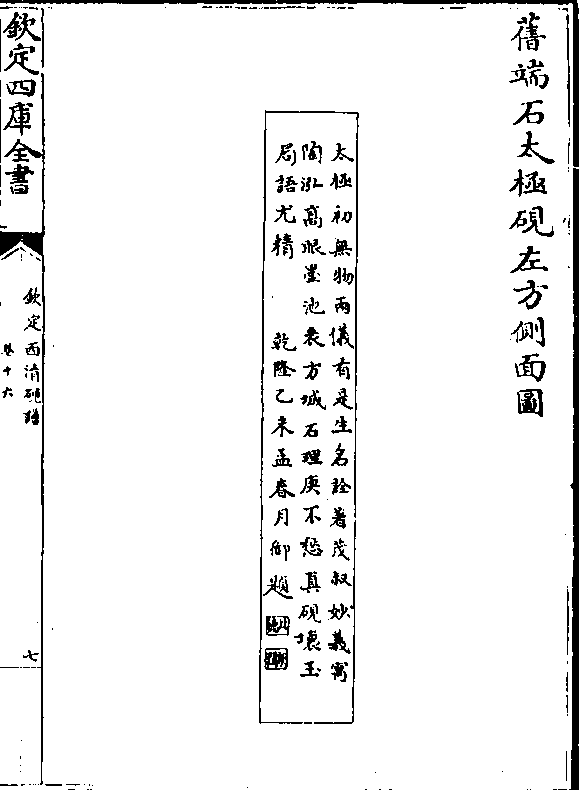 舊端石太極硯左方側面圖
太極初無物兩儀有是生名詮著茂叔妙義寓
陶泓高眼墨池表方城石理庚不愆真硯壞玉
局語尤精　乾隆乙未孟春月御題
欽定四庫全書
欽定西清硯譜
卷十六
七